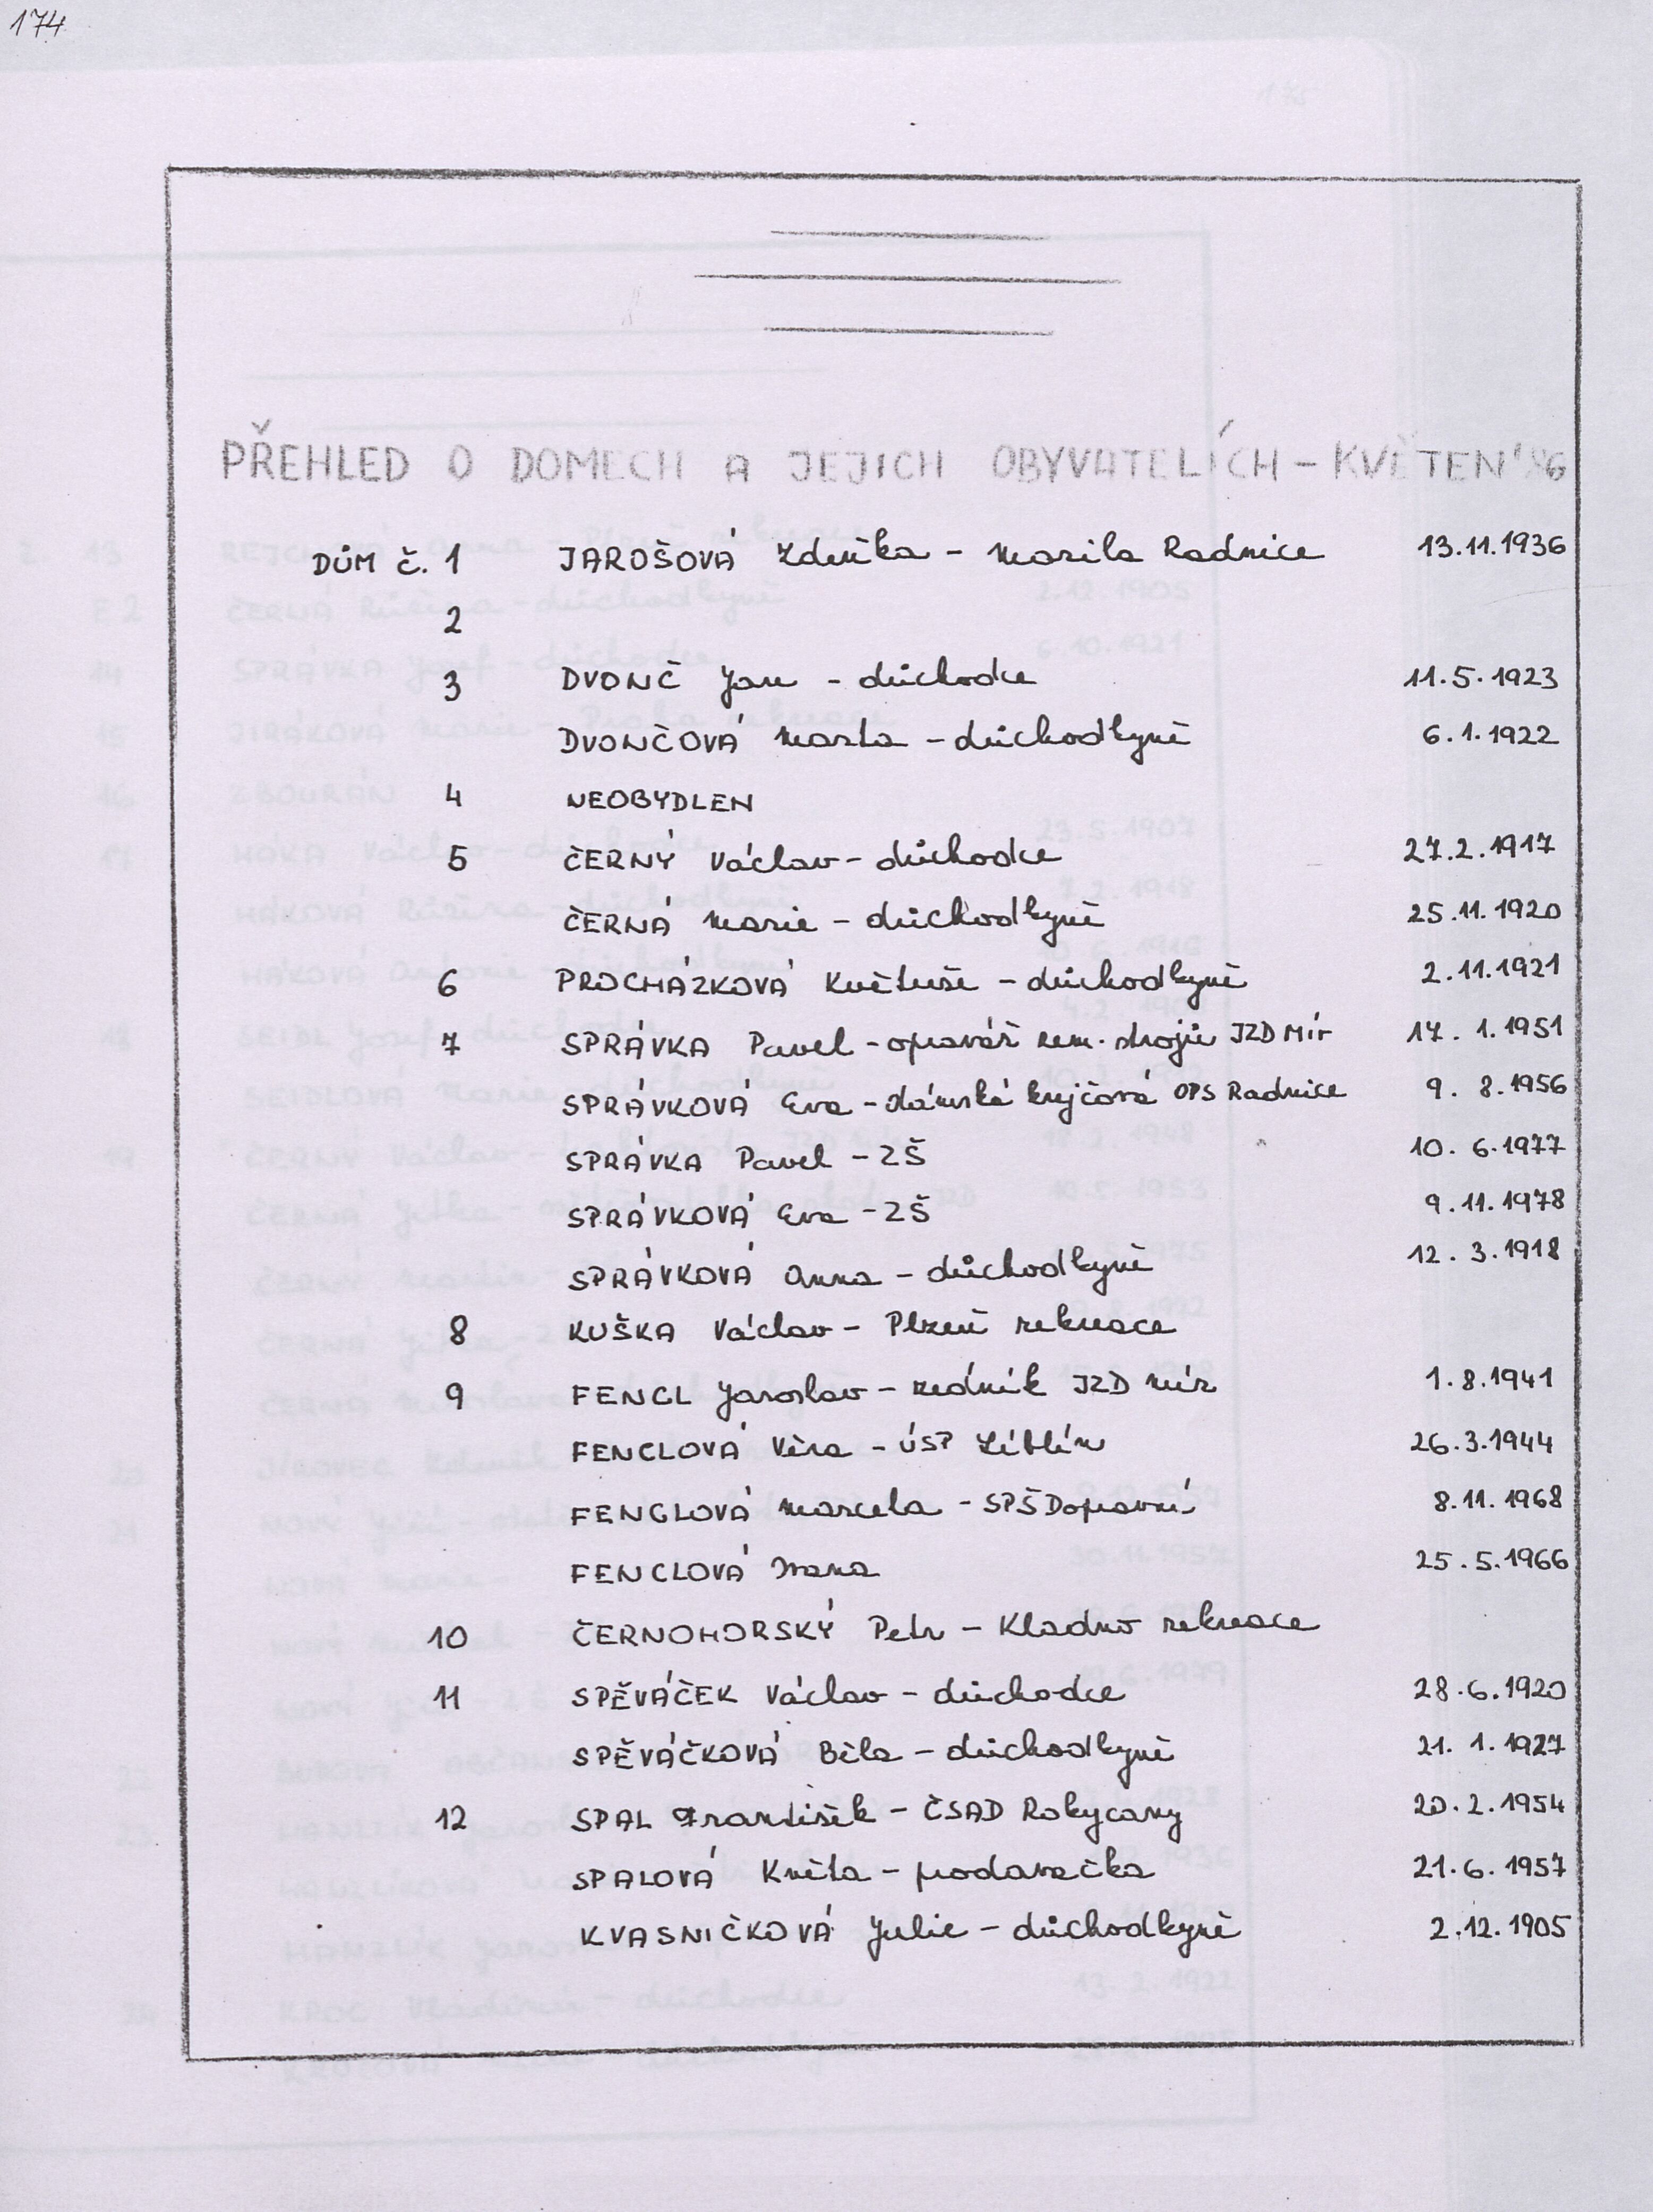 174
PŘEHLED O DOMECH A JEJICH OBYVATELÍCH - KVĚTEN '86
DŮM Č. 1 JAROŠOVÁ Zdeňka - Radnice 13.11.1936
2
3 DVONČ Jan - důchodce 11.5.1923
DVONČOVÁ Marta - důchodkyně 6.1.1922
4 NEOBYDLEN
5 ČERNÝ Václav - důchodce 27.2.1917
ČERNÁ Marie - důchodkyně 25.11.1920
6 PROCHÁZKOVÁ Květuše - důchodkyně 2.11.1921
7 SPRÁVKA Pavel - opravář zem. strojů JZD Mír 17. 1.1951
SPRÁVKOVÁ Eva - dámská krejčová OPS Radnice 9. 8.1956
SPRÁVKA Pavel - ZŠ 10. 6.1977
SPRÁVKOVÁ Eva - ZŠ 9.11.1978
SPRÁVKOVÁ Anna - důchodkyně 12. 3.1918
8 KUŠKA Václav - Plzeň rekreace
9 FENCL Jaroslav - zedník JZD Mír 1.8.1941
FENCLOVÁ Věra - ÚSP Liblín 26.3.1944
FENCLOVÁ Marcela - SPŠ Dopravní 8.11.1968
FENCLOVÁ Ivana 25.5.1966
10 ČERNOHORSKÝ Petr - Kladno rekreace
11 SPĚVÁČEK Václav - důchodce 28.6.1920
SPĚVÁČKOVÁ Běla - důchodkyně 21. 1.1927
12 SPAL František - ČSAD Rokycany 20.2.1954
SPALOVÁ Květa - prodavačka 21.6.1957
KVASNIČKOVÁ Julie - důchodkyně 2.12.1905